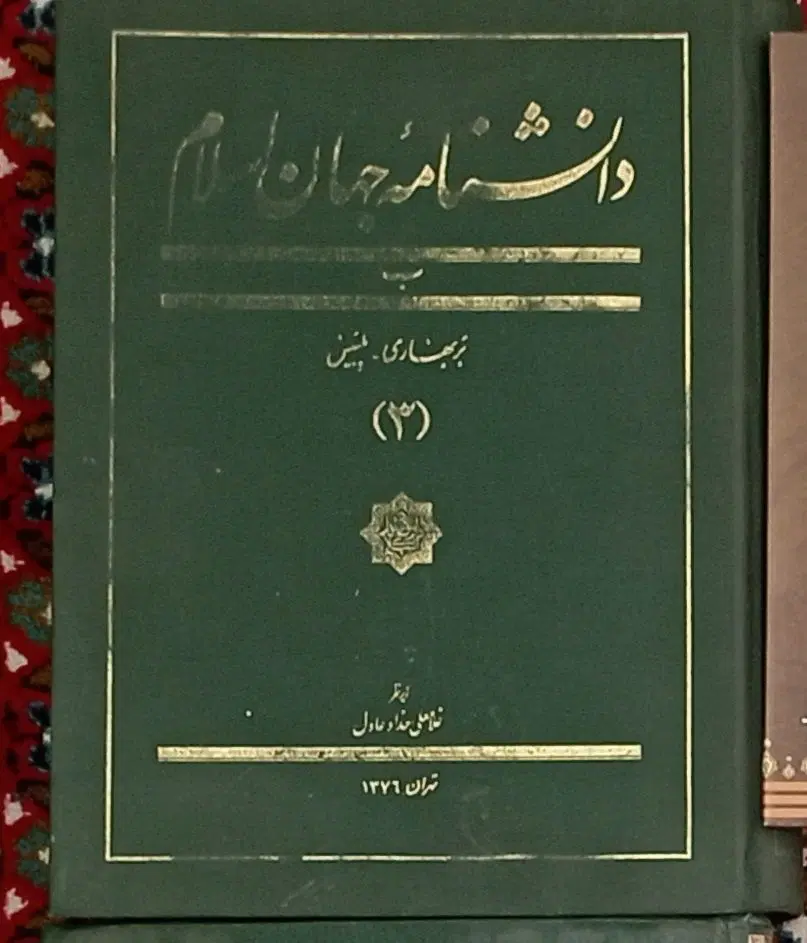 دانشنامهٔ جهان اسلام
ب
بربهاری - بلتیس
(۳)
زیر نظر
غلامعلی حداد عادل
تهران ۱۳۷۶